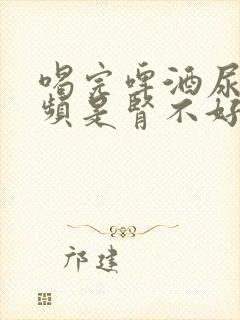 喝完啤酒尿
频是肾不好
邝建